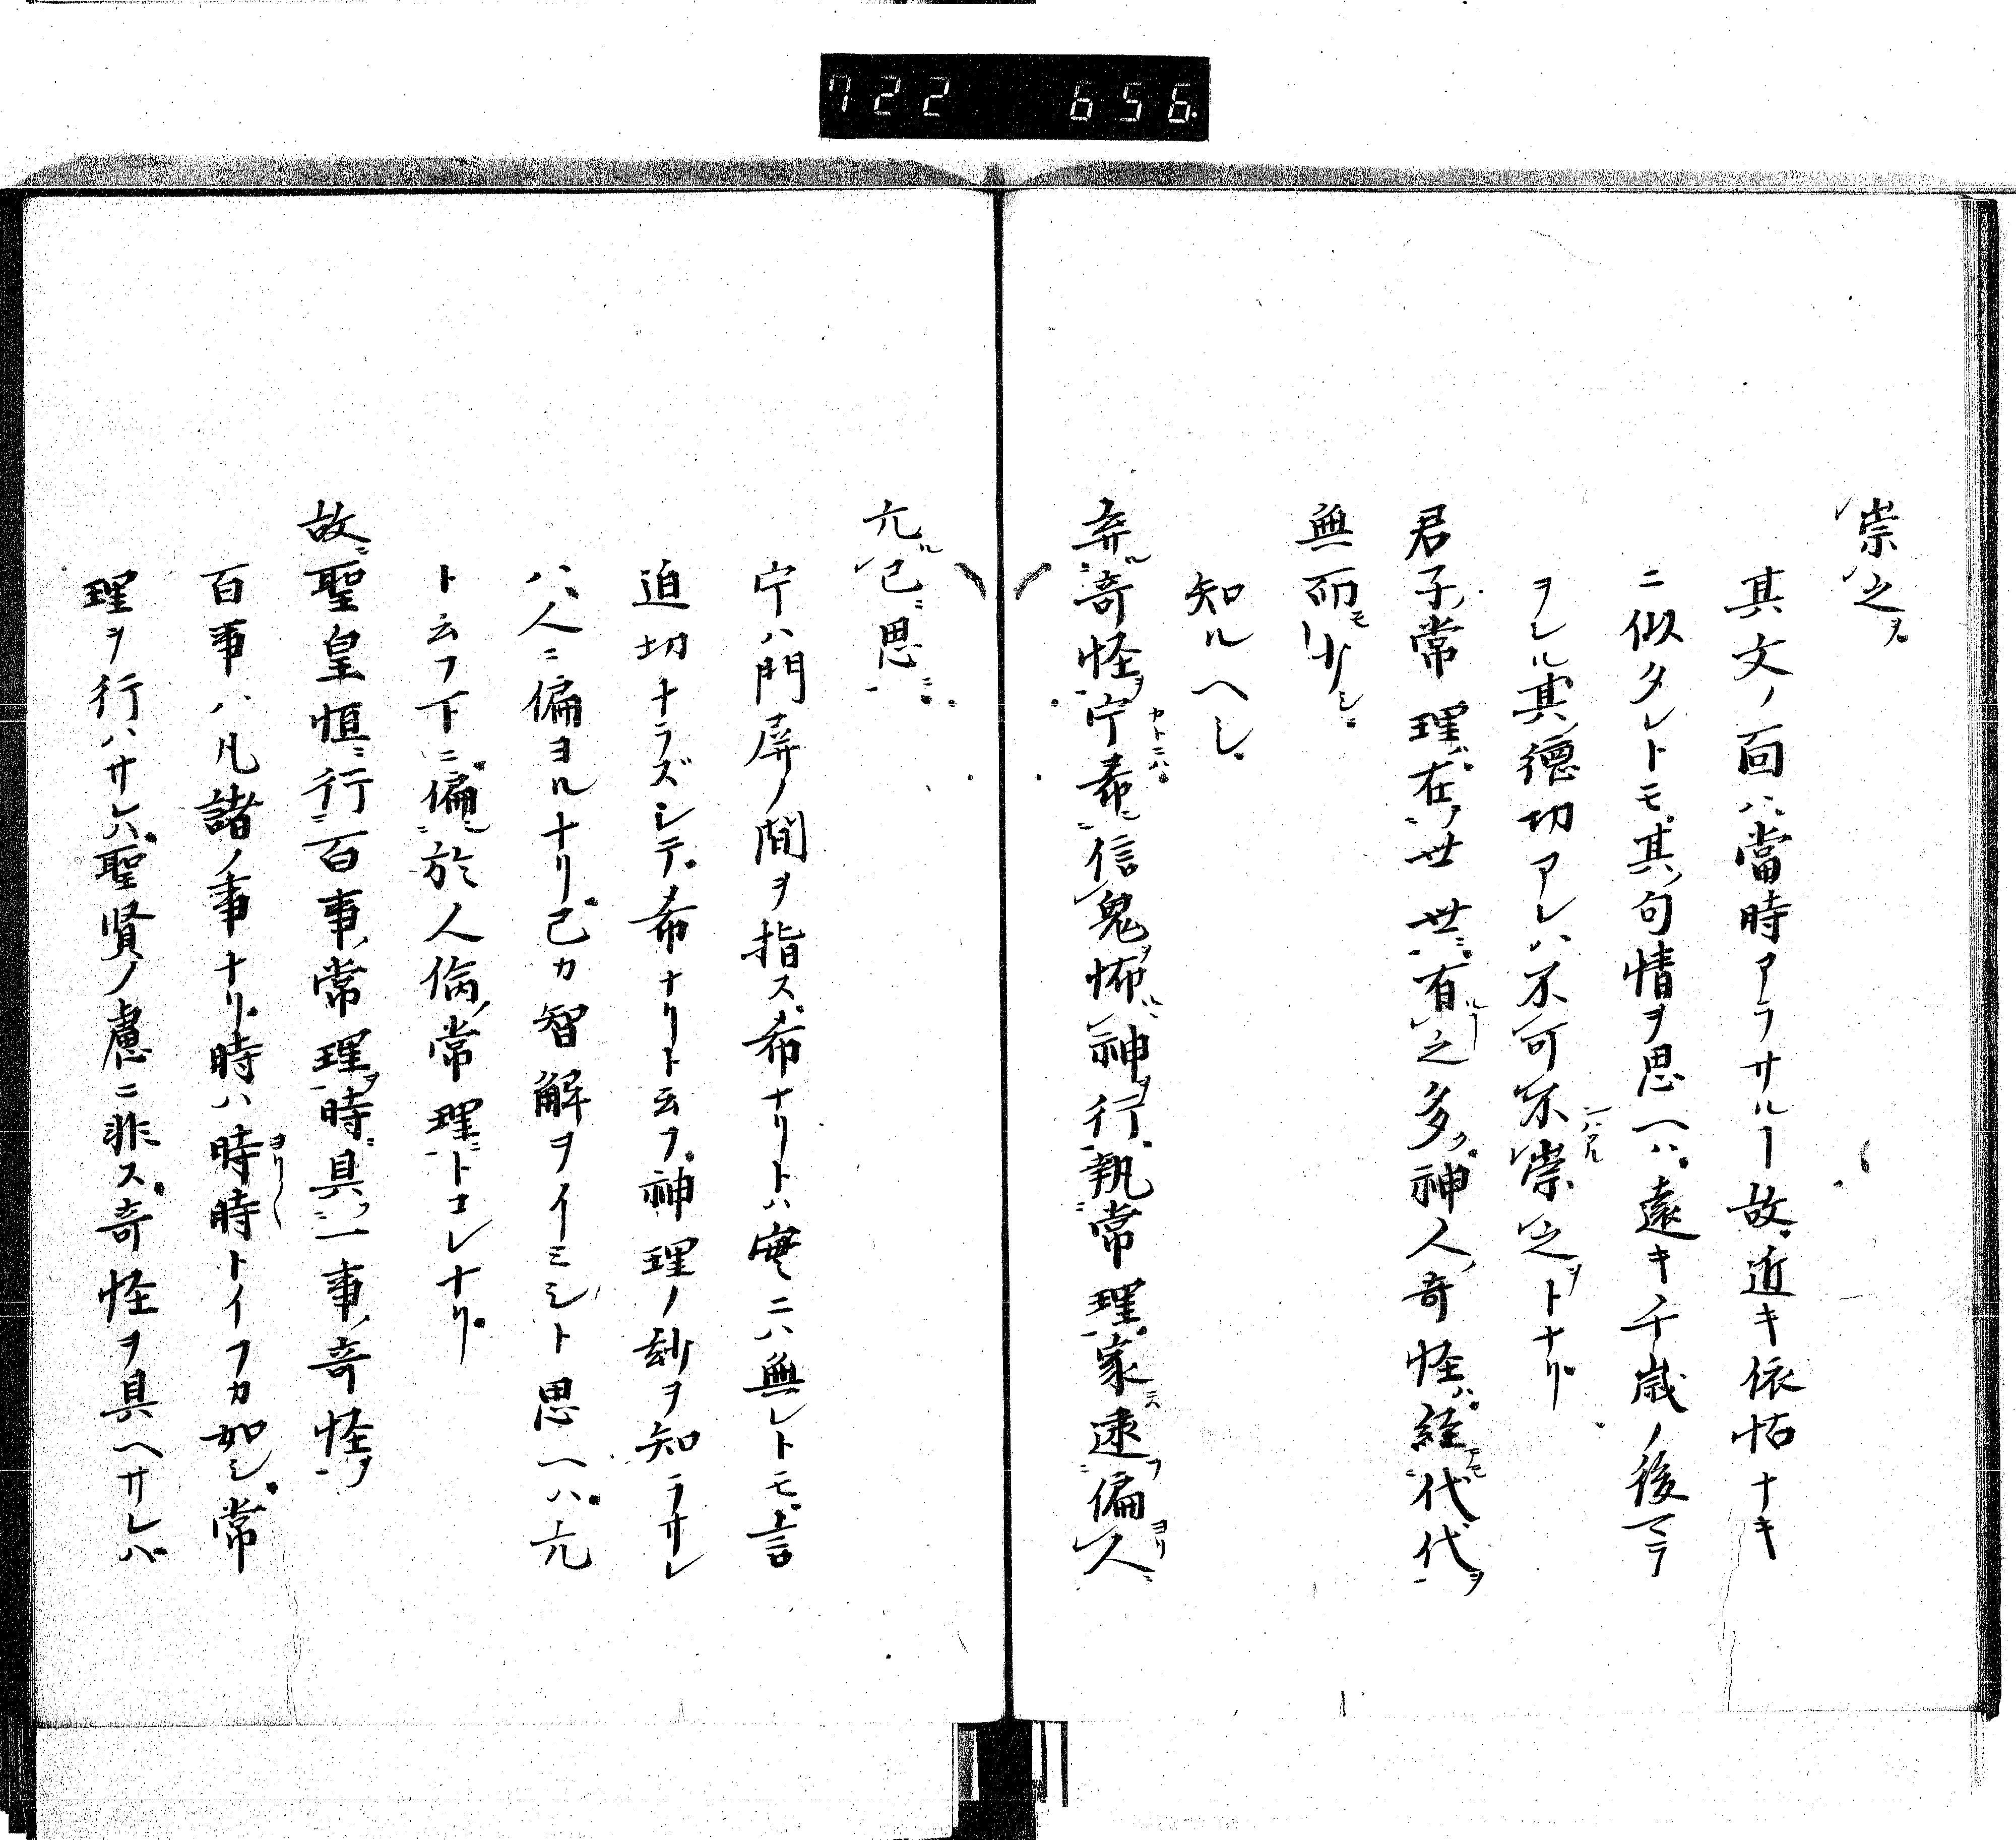 722 656
崇之ヲ
其文ノ面ハ當時アラサルヿ故近キ依怙ナキ
ニ似タレトモ其句情ヲ思ヘハ遠キ千歳ノ後マテ
ヲレル其德切アレハ不可不崇之ヲトナリ
君子常理ハ在ヲ世世ニ有ルヿ之多ク神人奇怪ハ経モ代代ヲ
無而モ少シ
知ルヘシ
弃ル奇怪ヲ宁希ニ信鬼ヲ怖ルニ神ヲ行執常理家逮フ偏ヨリ人ニ
亢ル已ニ思ニ
宁ハ門屏ノ間ヲ指ス希ナリトハ寔ニハ無レトモ言
迫切ナラズシテ希ナリト云フ神理ノ玅ヲ知ラサレ
ハ人ニ偏ヨルナリ己カ智解ヲイミシト思ヘハ亢
ト云フ下ニ偏シ於人倫常理ニトコレナリ
故ニ聖皇恒ニ行百事常理ヲ時ニ具一事奇怪ヲ
百事ハ凡諸ノ事ナリ時ハ時時トイフカ如シ常
理ヲ行ハサレハ聖賢ノ慮ニ非ス奇怪ヲ具ヘサレハ